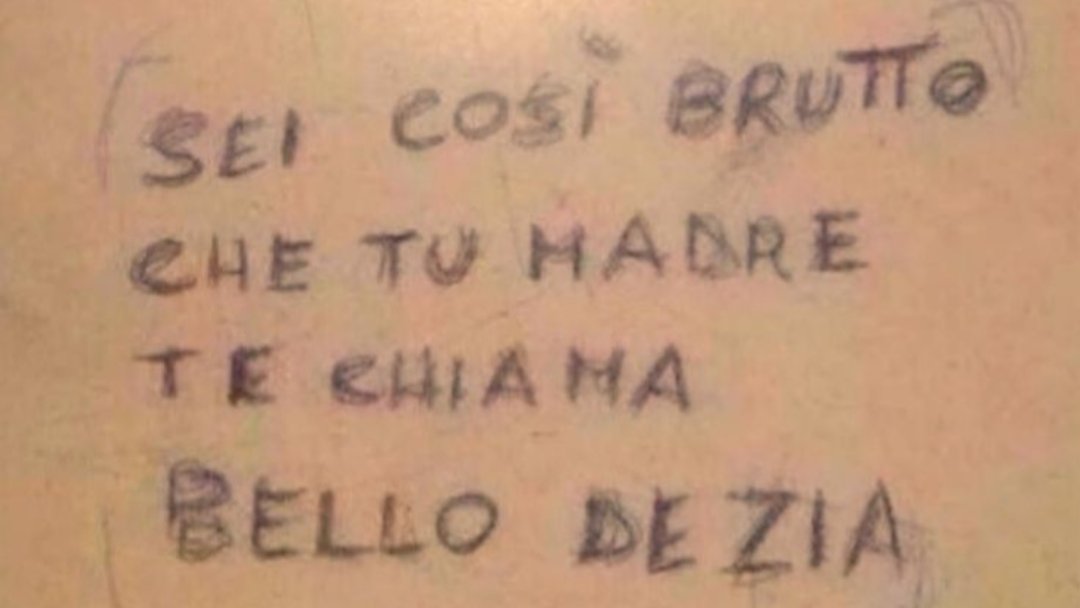 SEI COSÌ BRUTTO
CHE TU MADRE
TE CHIAMA
BELLO DE ZIA